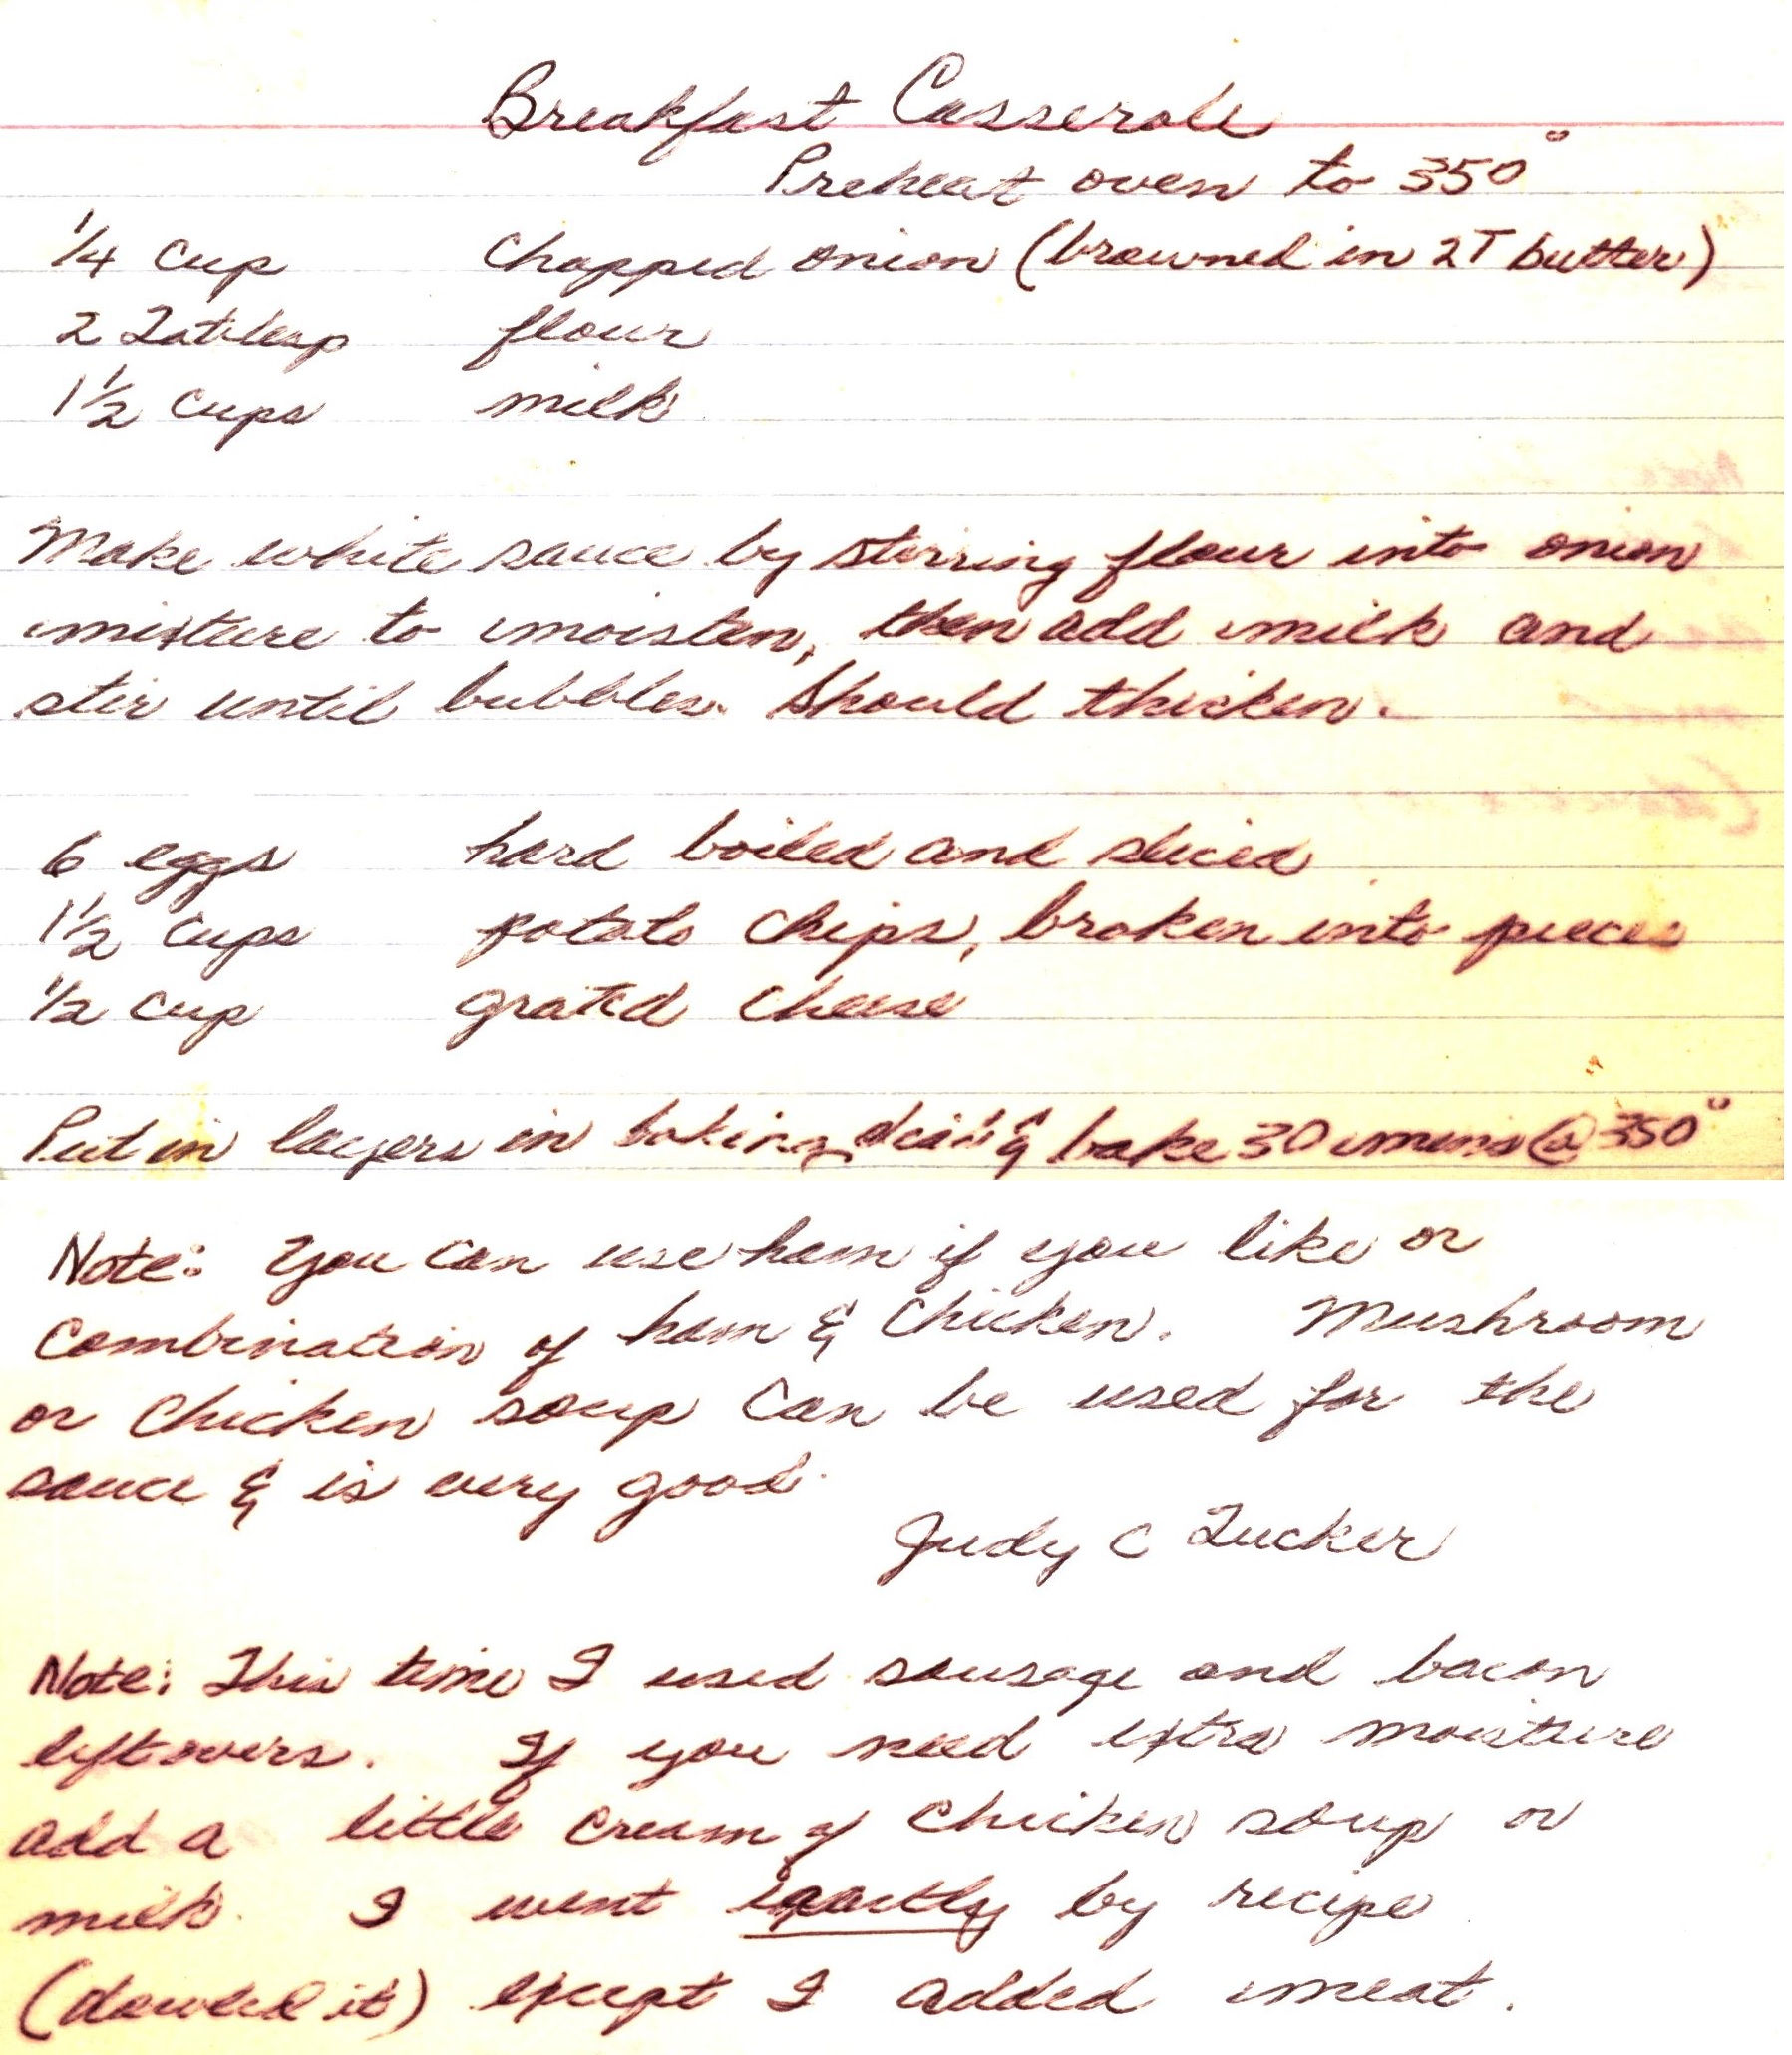 Breakfast Casserole
Preheat oven to 350°
1/4 cup chopped onion (browned in 2T butter)
2 Tablesp flour
1 1/2 cups milk
Make white sauce by stirring flour into onion
mixture to moisten, then add milk and
stir until bubbles. Should thicken.
6 eggs hard boiled and sliced
1 1/2 cups potato chips, broken into pieces
1/2 cup grated cheese
Put in layers in baking dish & bake 30 mins @ 350°
Note: You can use ham if you like or
combination of ham & chicken. Mushroom
or chicken soup can be used for the
sauce & is very good.
Judy C Tucker
Note: This time I used sausage and bacon
leftovers. If you need extra moisture
add a little cream of chicken soup or
milk. I went exactly by recipe
(doubled it) except I added meat.